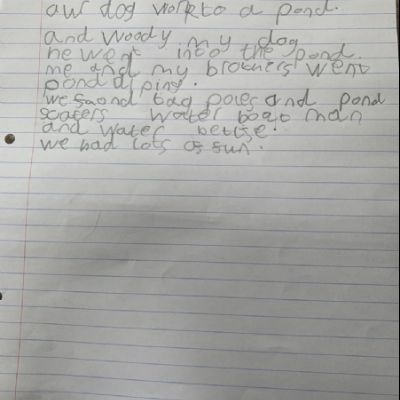 our dog work to a pond.
and woody my dog
he went into the pond.
me and my brothers went
pond dipping.
we saond tad poles and pond
scaters water boat man
and water betlse.
we had lots os sun.